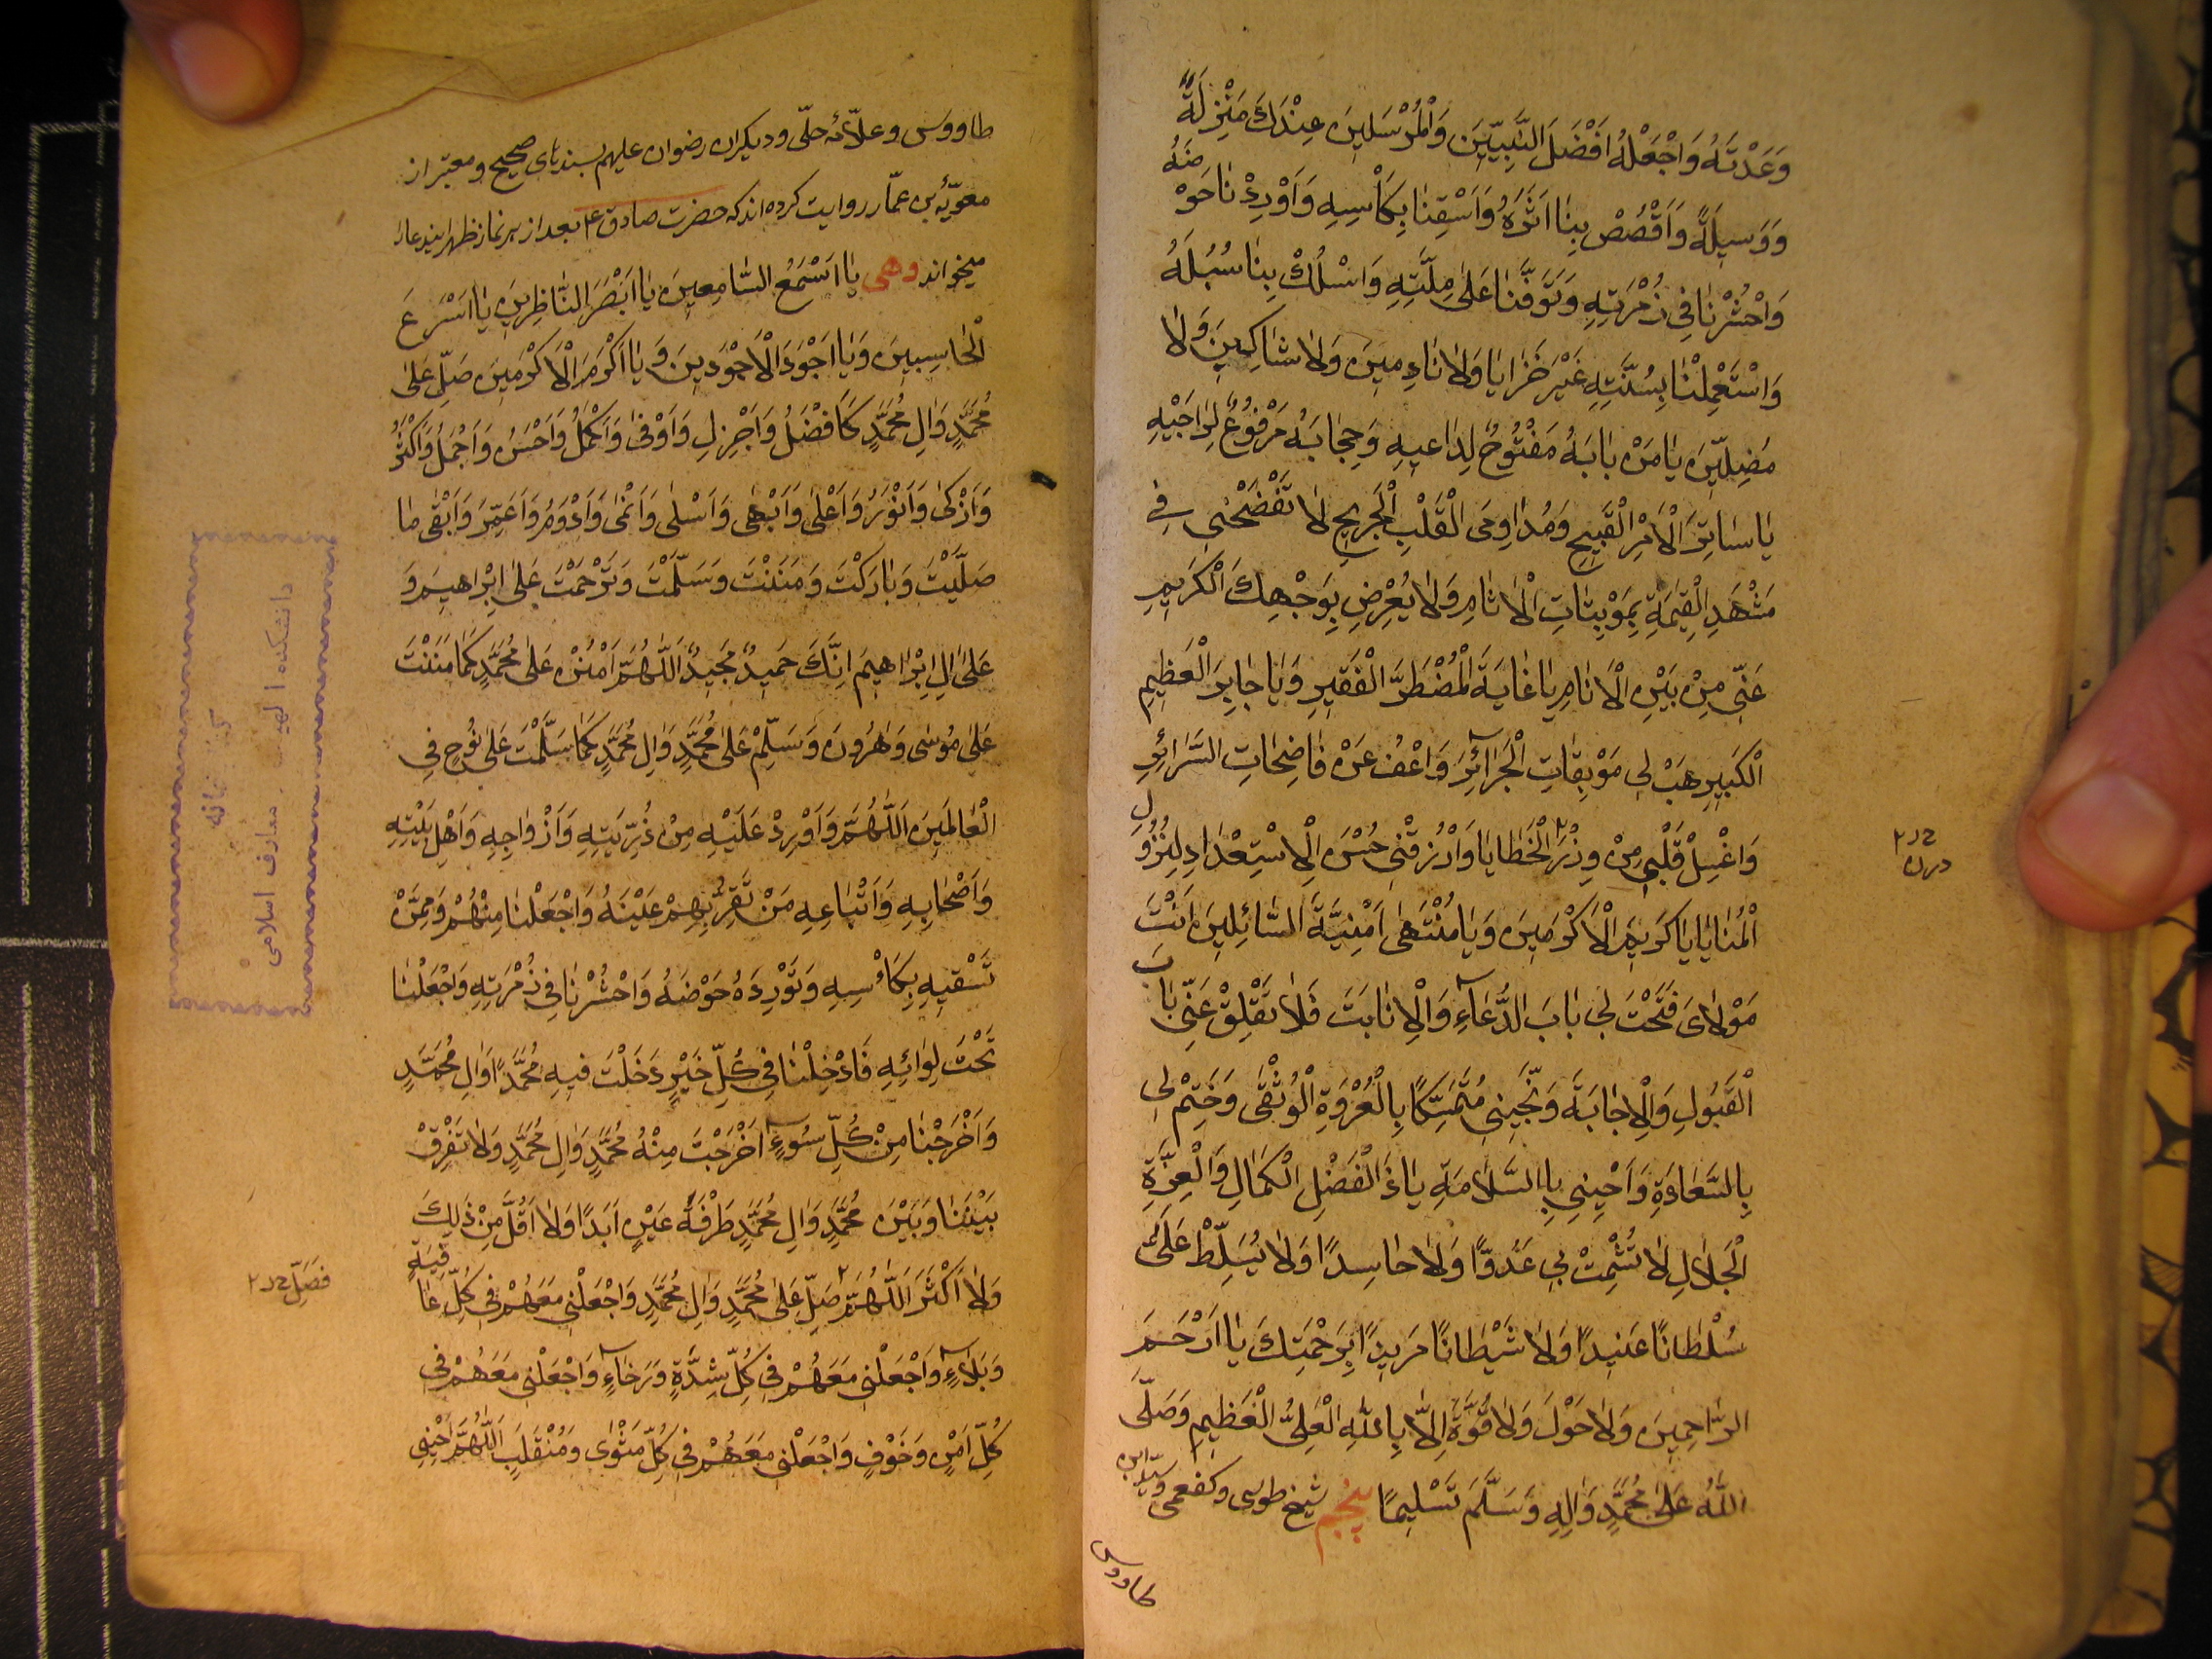 وَعَدْتَهُ وَاجْعَلْهُ اَفْضَلَ النَّبِيّيَن وَالْمُرْسَلينَ عِنْدَكَ مَنْزِلَةً
وَوَسيلَةً وَاَقْصُصْ بِنا اَثَرَهُ وَاَسْقِنا بِكَأْسِهِ وَاَوْرِدْنا حَوْضَهُ
وَاحْشُرْنا فِى زُمْرَتِهِ وَتَوَفَّنا عَلى مِلَّتِهِ وَاسْلُكْ بِنا سُبُلَهُ
وَاسْتَعْمِلْنا بِسُنَّتِهِ غَيْرَ خَزايا وَلا نادِمينَ وَلا شاكِينَ وَلا
مُضِلّينَ يا مَنْ بابَهُ مَفْتُوحٌ لِداعيهِ وَحِجابَهُ مَرْفُوعٌ لِراجيهِ
يا ساتِرَ الْاَمْرِ الْقَبيحِ وَمُداوِىَ الْقَلْبِ الْجَريحِ لا تَفْضَحْنى فِى
مَشْهَدِ الْقِيمَةِ بِمَوْبِقاتِ الْاثامِ وَلا يُعْرِضِ بِوَجْهِكَ الْكَريمِ
عَنّى مِنْ بَيْنِ الْاَنامِ يا غايَةَ الْمُضْطَرَّ الْفَقيرِ وَيا جابِرَ الْعَظيمِ
الْكَبيرِ هَبْ لى مَوْبِقاتِ الْجَرائِرَ وَاعْفُ عَنْ فاضِحاتِ السَّرائِرِ
وَاغْسِلْ قَلْبى مِنْ وِزْرِ الْخَطايا وَارْزُقْنى حُسْنَ الْاِسْتِعْدادِ لِنُزُولِ
الْمَنايا يا كَريمَ الْاَكْرَمينَ وَيا مُنْتَهى اَمْنِيَّةَ السّائِلينَ اَنْتَ
مَوْلاىَ فَتَحْتَ لى بابَ الدُّعاءِ وَالْاِنابَتَ فَلا تَقْلِقْ عَنّى بابَ
الْقَبُولِ وَالْاِجابَةَ وَنَجّينى مُتَمَسِّكًا بِالْعُرْوَةِ الْوُثْقى وَخَتِمْ لى
بِالسَّعادَةِ وَاَحْيِنى بِاالسَّلامَةِ ياذَالْفَضْلِ الْكَمالِ وَالْعِزَّةِ
الْجَلالِ لا تُشْمِتْ بى عَدُوًّا وَلا حاسِدًا وَلا تُسَلِّطْ عَلَىَّ
سُلْطانًا عَنيدًا وَلا شَيْطانًا مَريدًا بِرَحْمَتِكَ يا اَرْحَمَ
الرّاحِمينَ وَلا حَوْلَ وَلا قُوَّةَ اِلّا بِاللّهِ الْعَلِىُّ الْعَظيمِ وَصَلَّى
اللّهُ عَلى مُحَمَّدٍ وَالِهِ وَسَلَّمَ تَسْليمًا پنجم شيخ طوسى وكفعمى وسيّد ابن
طاووس
طاووس وعلّامهٔ حلّى وديكران رضوان عليهم بسندهاى صحيح ومعتبر از
معويّهٔ بن عمّار روايت كرده‌اند كه حضرت صادق ع بعد از هر نماز ظهر ايندعا را
ميخواند وهى يا اَسْمَعَ السّامِعينَ يا اَبْصَرَ النّاظِرينَ يا اَسْرَعَ
الْحاسِبينَ وَيا اَجْوَدَ الْاَجْوَدينَ وَيا اَكْرَمَ الْاَكْرَمينَ صَلِّ عَلى
مُحَمَّدٍ وَالِ مُحَمَّدٍ كَاَفْضَلُ وَاَجْزِلِ وَاَوْفى وَاَكْمَلُ وَاَحْسَنُ وَاَجْمَلُ وَاَكْثَرُ
وَاَزْكى وَاَنْوَرُ وَاَعْلى وَاَبْهى وَاَسْلى وَاَنْمى وَاَدْوَمُ وَاَعَمِّرَ وَاَبْقى ما
صَلَّيْتَ وَبارَكْتَ وَمَنَنْتَ وَسَلَّمْتَ وَتَرْحَمْتَ عَلى اِبْراهيمَ وَ
عَلى الِ اِبْراهيمَ اِنَّكَ حَميدٌ مَجيدٌ اَللّهُمَّ امْنُنْ عَلى مُحَمَّدٍ كَما مَنَنْتَ
عَلى مُوسى وَهرُونَ وَسَلِّمْ عَلى مُحَمَّدٍ وَالِ مُحَمَّدٍ كَما سَلَّمْتَ عَلى نُوحٍ فِى
الْعالَمينَ اَللّهُمَّ وَاَوْرِدْ عَلَيْهِ مِنْ ذُرّيَتِهِ وَاَزْواجِهِ وَاَهْلِ بَيْتِهِ
وَاَصْحابِهِ وَاَتْباعِهِ مَنْ تَقِرُّ بِهِمْ عَيْنَهُ وَاجْعَلْنا مِنْهُمْ وَمِمَّنْ
تَسْقيهِ بِكَاْسِهِ وَتَوْرِدَهُ حَوْضَهُ وَاحْشُرْنا فِى زُمْرَتِهِ وَاجْعَلْنا
تَحْتَ لِوائِهِ فَادْخِلْنا فِى كُلِّ خَيْرٍ دَخَلْتَ فيهِ مُحَمَّدًا وَالِ مُحَمَّدٍ
وَاَخْرَجْنا مِنْ كُلِّ سُوءٍ اَخْرَجْتَ مِنْهُ مُحَمَّدٍ وَالِ مُحَمَّدٍ وَلا تَفْرِقْ
بَيْنَنا وَبَيْنَ مُحَمَّدٍ وَالِ مُحَمَّدٍ طَرْفَةُ عَيْنٍ اَبَدًا وَلا اَقَلَّ مِنْ ذلِكَ
وَلا اَكْثَرَ اَللّهُمَّ صَلِّ عَلى مُحَمَّدٍ وَالِ مُحَمَّدٍ وَاجْعَلْنى مَعَهُمْ فِى كُلِّ عافِيَةٍ
وَبَلاءٍ وَاجْعَلْنى مَعَهُمْ فِى كُلِّ شِدَّةٍ وَرَخاءٍ وَاجْعَلْنى مَعَهُمْ فِى
كُلِّ اَمْنٍ وَخَوْفٍ وَاجْعَلْنى مَعَهُمْ فِى كُلِّ مَثْوى وَمُنْقَلَبٍ اَللّهُمَّ اَحْيِنى
دانشكده الهيات و معارف اسلامى
كتابخانه